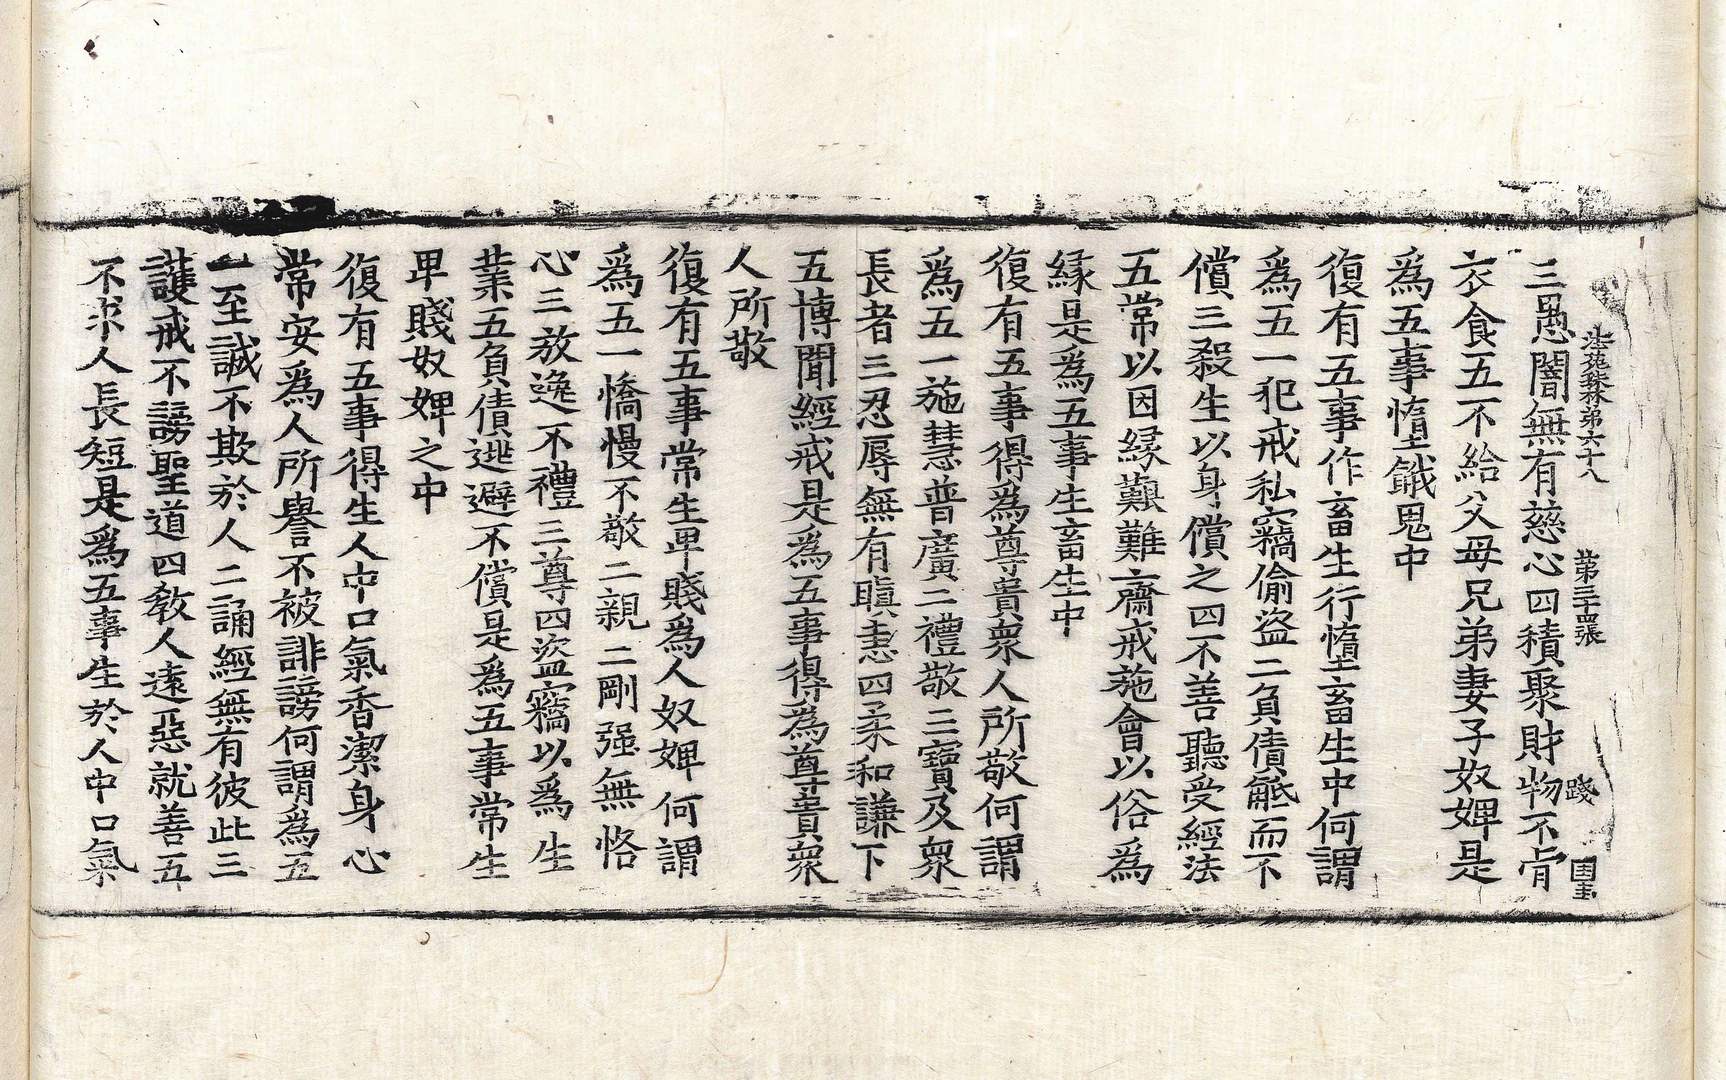 法苑珠林第六十八 第三十四張 踐 國圭
三愚闇無有慈心四積聚財物不肯
衣食五不給父母兄弟妻子奴婢是
爲五事墮餓鬼中
復有五事作畜生行墮畜生中何謂
爲五一犯戒私竊偷盜二負債觝而不
償三殺生以身償之四不善聽受經法
五常以因縁艱難齋戒施會以俗爲
縁是爲五事生畜生中
復有五事得爲尊貴衆人所敬何謂
爲五一施慧普廣二禮敬三寶及衆
長者三忍辱無有瞋恚四柔和謙下
五博聞經戒是爲五事得爲尊貴衆
人所敬
復有五事常生卑賤爲人奴婢何謂
爲五一憍慢不敬二親二剛强無恪
心三放逸不禮三尊四盜竊以爲生
業五負債逃避不償是爲五事常生
卑賤奴婢之中
復有五事得生人中口氣香潔身心
常安爲人所譽不被誹謗何謂爲五
一至誠不欺於人二誦經無有彼此三
護戒不謗聖道四教人遠惡就善五
不求人長短是爲五事生於人中口氣